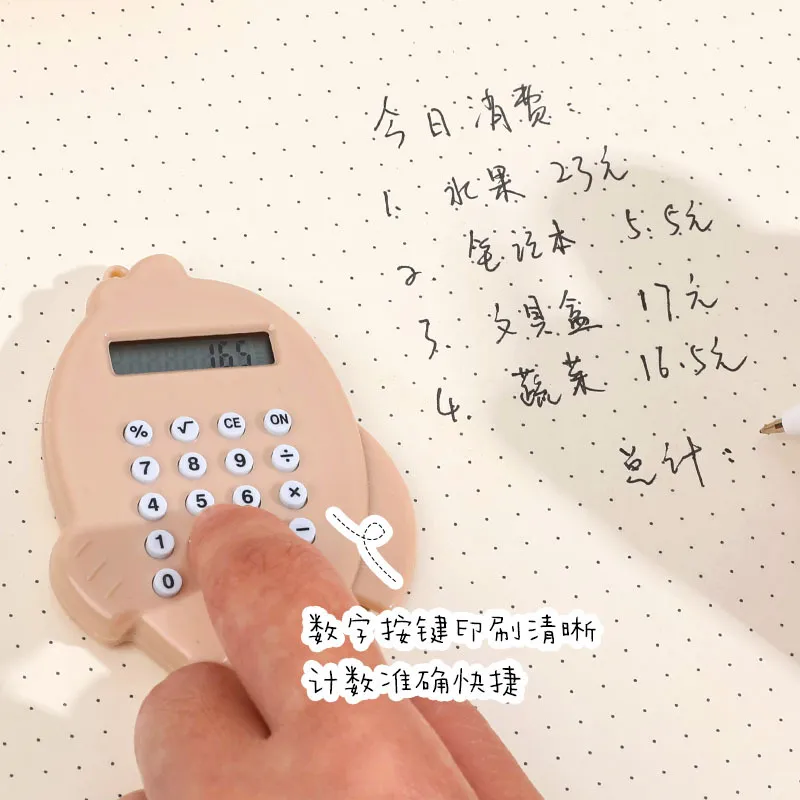 今日消费:
1. 水果 23元
2. 笔记本 5.5元
3. 文具盒 17元
4. 蔬菜 16.5元
总计:
16.5
% √ CE ON
7 8 9 ÷
4 5 6 ×
1 −
0
数字按键印刷清晰
计数准确快捷